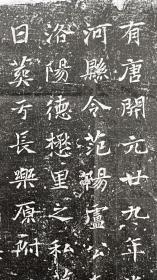 有唐開元廿九年
河縣令范陽盧公
洛陽德懋里之私
日葬于長樂原附